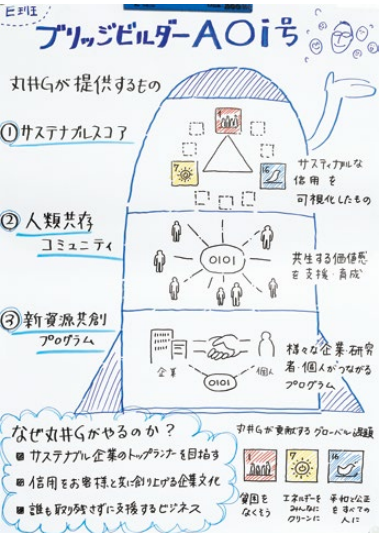 E班
ブリッジビルダーAOi号
丸井Gが提供するもの
①サステナブルスコア
1
7
16
サスティナブルな
信用を
可視化したもの
②人類共存
コミュニティ
0101
共生する価値感
を支援・育成
③新資源共創
プログラム
企業
個人
0101
様々な企業・研究
者・個人がつながる
プログラム
なぜ丸井Gがやるのか?
サステナブル企業のトップランナーを目指す
信用をお客様と共に創り上げる企業文化
誰も取り残さずに支援するビジネス
丸井Gが貢献するグローバル課題
1
7
16
貧困を
なくそう
エネルギーを
みんなに
クリーンに
平和と公正
をすべての
人に